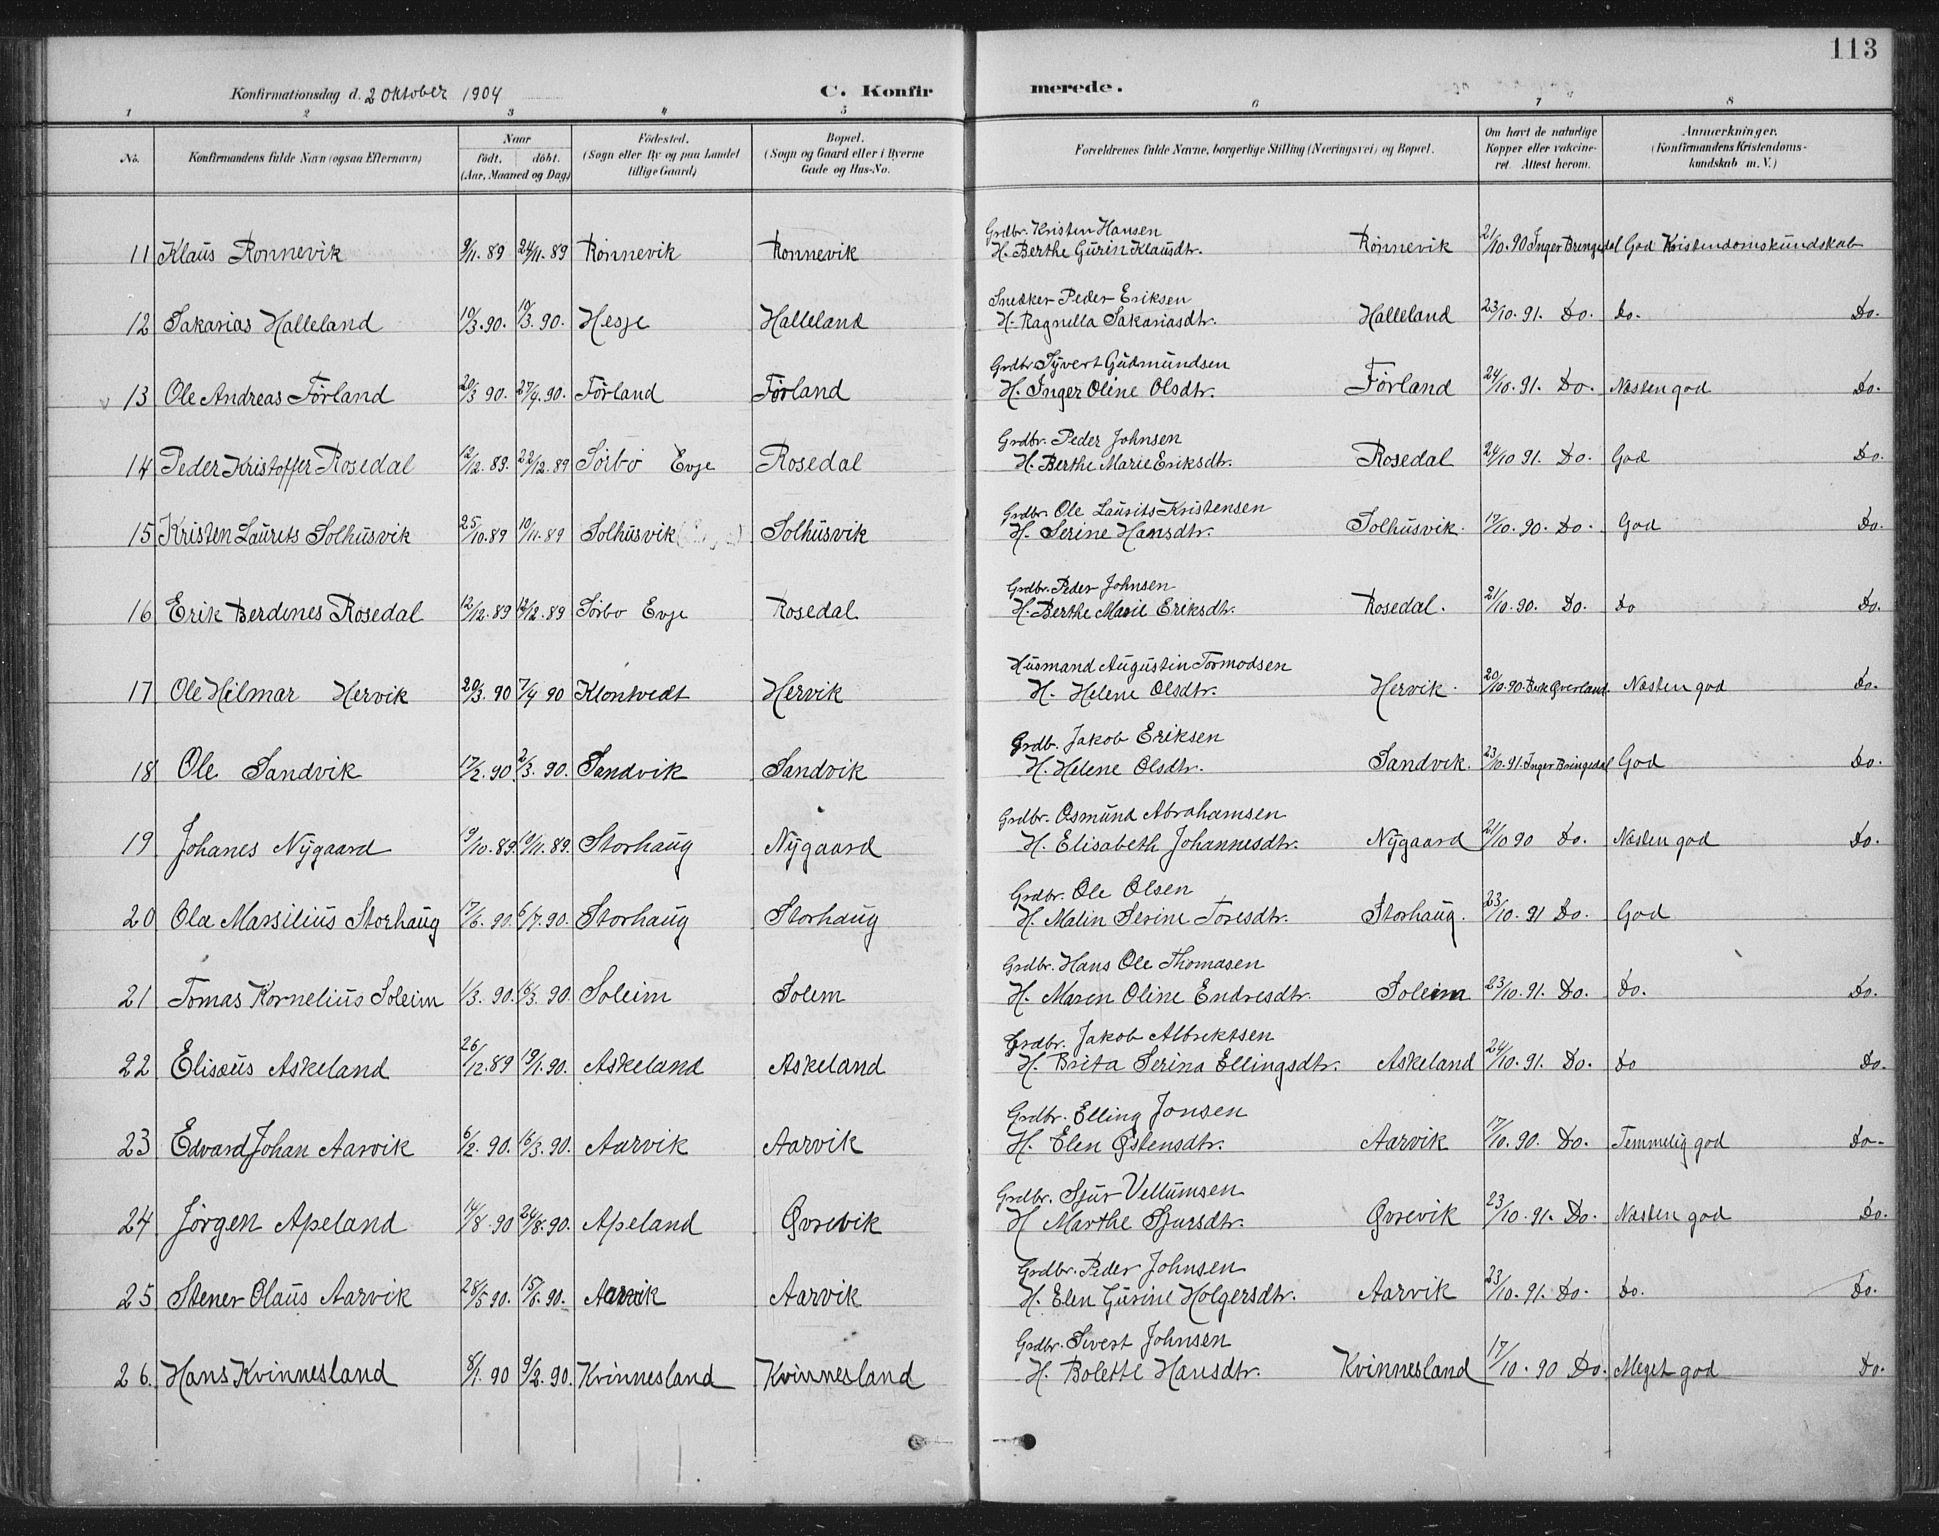 113
Konfirmationsdag d. 2 Oktober 1904 C. Konfirmerede.
1 2 3 4 5 6 7 8
No. Konfirmandens fulde Navn (ogsaa Efternavn) Naar födt. döbt. (Aar, Maaned og Dag) Födested. (Sogn eller By og paa Landet tillige Gaard) Bopæl. (Sogn og Gaard eller i Byerne Gade og Hus-No. Forældrenes fulde Navne, borgerlige Stilling (Næringsvei) og Bopæl. Om havt de naturlige Kopper eller vakcineret. Attest herom. Anmærkninger. (Konfirmandens Kristendomskundskab m. V.)
Grdbr. Kristen Hansen
11 Klaus Rønnevik 9/11. 89 24/11. 89 Rønnevik Rønnevik H. Berthe Gurin Klausdtr. Rønnevik 21/10. 90 Inger Bringedal God Kristendomskundskab
Snedker Peder Eriksen
12 Sakarias Halleland 10/3. 90. 19/3. 90. Hesje Halleland H. Ragnella Sakariasdtr. Halleland 23/10. 91. Do. Do. Do.
Grdbr Syvert Gudmundsen
13 Ole Andreas Førland 20/3 90. 27/4. 90. Førland Førland H. Inger Oline Olsdtr. Førland 24/10. 91. Do. Næsten god Do.
Grdbr. Peder Johnsen
14 Peder Kristoffer Rosedal 12/12. 89. 22/12. 89 Sørbø Evje Rosedal H. Berthe Marie Eriksdtr. Rosedal 24/10 91. Do. God Do.
Grdbr. Ole Laurits Kristensen
15 Kristen Laurits Solhusvik 25/10. 89 10/11. 89 Solhusvik Solhusvik H. Serine Hansdtr. Solhusvik. 17/10. 90. Do. God Do.
Grdbr. Peder Johnsen
16 Erik Berdines Rosedal 12/12. 89 12/12. 89 Sørbø Evje Rosedal H. Berthe Marie Eriksdtr. Rosedal. 21/10. 90. Do. Do Do.
Husmand Augustin Tormodsen
17 Ole Hilmar Hervik 20/3. 90 7/4 90 Klontvedt Hervik H. Helene Olsdtr. Hervik. 20/10. 90. Øverland. Næsten god Do.
Grdb. Jakob Eriksen
18 Ole Sandvik 17/2. 90 2/3. 90. Sandvik Sandvik H. Helene Olsdtr. Sandvik. 23/10. 91. Inger Bringedal God Do.
Grdbr. Osmund Abrahamsen
19 Johanes Nygaard 19/10. 89. 10/11. 89. Storhaug Nygaard H. Elisabeth Johannesdtr. Nygaard 21/10 90 Do. Næsten god Do.
Grdbr. Ole Olsen
20 Ola Marsilius Storhaug 17/6. 90 6/7. 90. Storhaug Storhaug H. Malin Serine Toresdtr. Storhaug. 23/10. 91 Do. God
Grdbr. Hans Ole Thomasen
21 Tomas Kornelius Soleim 1/3. 90. 16/3. 90. Soleim Solem H. Maren Oline Endresdtr. Soleim 23/10. 91. Do. Do. Do.
Grdbr. Jakob Albrektsen
22 Elisæus Askeland 26/12. 89 19/1. 90. Askeland Askeland H. Brita Serina Ellingsdtr. Askeland 24/10. 91. Do. Do Do.
Grdbr. Elling Jonsen
23 Edvard Johan Aarvik 6/2. 90. 16/3. 90. Aarvik Aarvik H. Elen Østensdtr. Aarvik 17/10. 90. Do. Temmelig god Do.
Grdbr. Sjur Vellumsen
24 Jørgen Apeland 14/8. 90 24/8. 90. Apeland Øvrevik H Marthe Sjursdtr. Øvrevik 23/10. 91. Do. Næsten god Do.
Grdbr. Peder Johnsen
25 Stener Olaus Aarvik 28/5 90. 15/6. 90. Aarvik Aarvik H. Elen Gurine Holgersdtr. Aarvik 23/10. 91. Do. Do. Do.
Grdbr. Sivert Johnsen
26. Hans Kvinnesland 8/1. 90 9/2. 90. Kvinnesland Kvinnesland H. Bolette Hansdtr. Kvinnesland 17/10. 90 Do. Meget god Do.